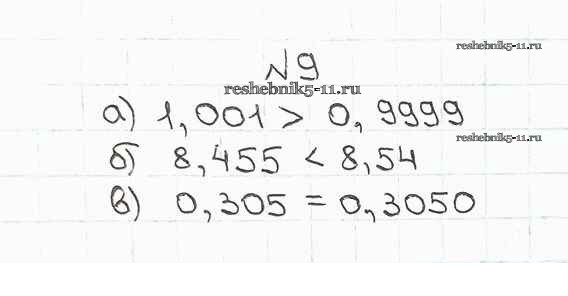 reshebnik5-11.ru
№9
reshebnik5-11.ru
а) 1,001 > 0,9999
reshebnik5-11.ru
б) 8,455 < 8,54
в) 0,305 = 0,3050